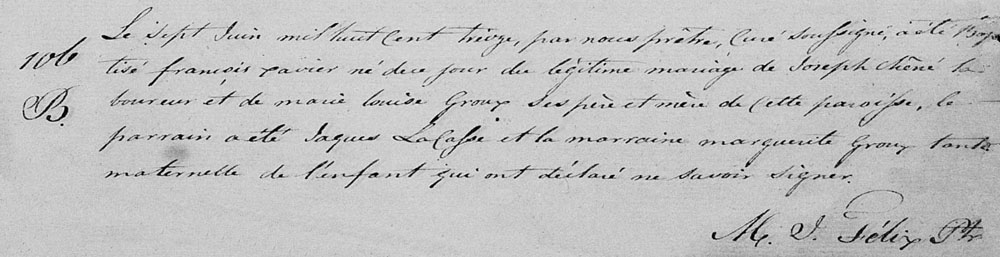 Le sept Juin mil huit Cent trèize, par nous prêtre, Curé Soussigné, a été Bap
106
tisé françois xavier né de ce jour du légitime mariage de Joseph Chêné la
B.
boureur et de marie louise Groux Ses père et mère de Cette paroisse, le
parrain a été Jaques LaCasse et la marraine marguerite Groux tante
maternelle de l'enfant qui ont déclaré ne savoir signer.
M. J. Félix Ptr